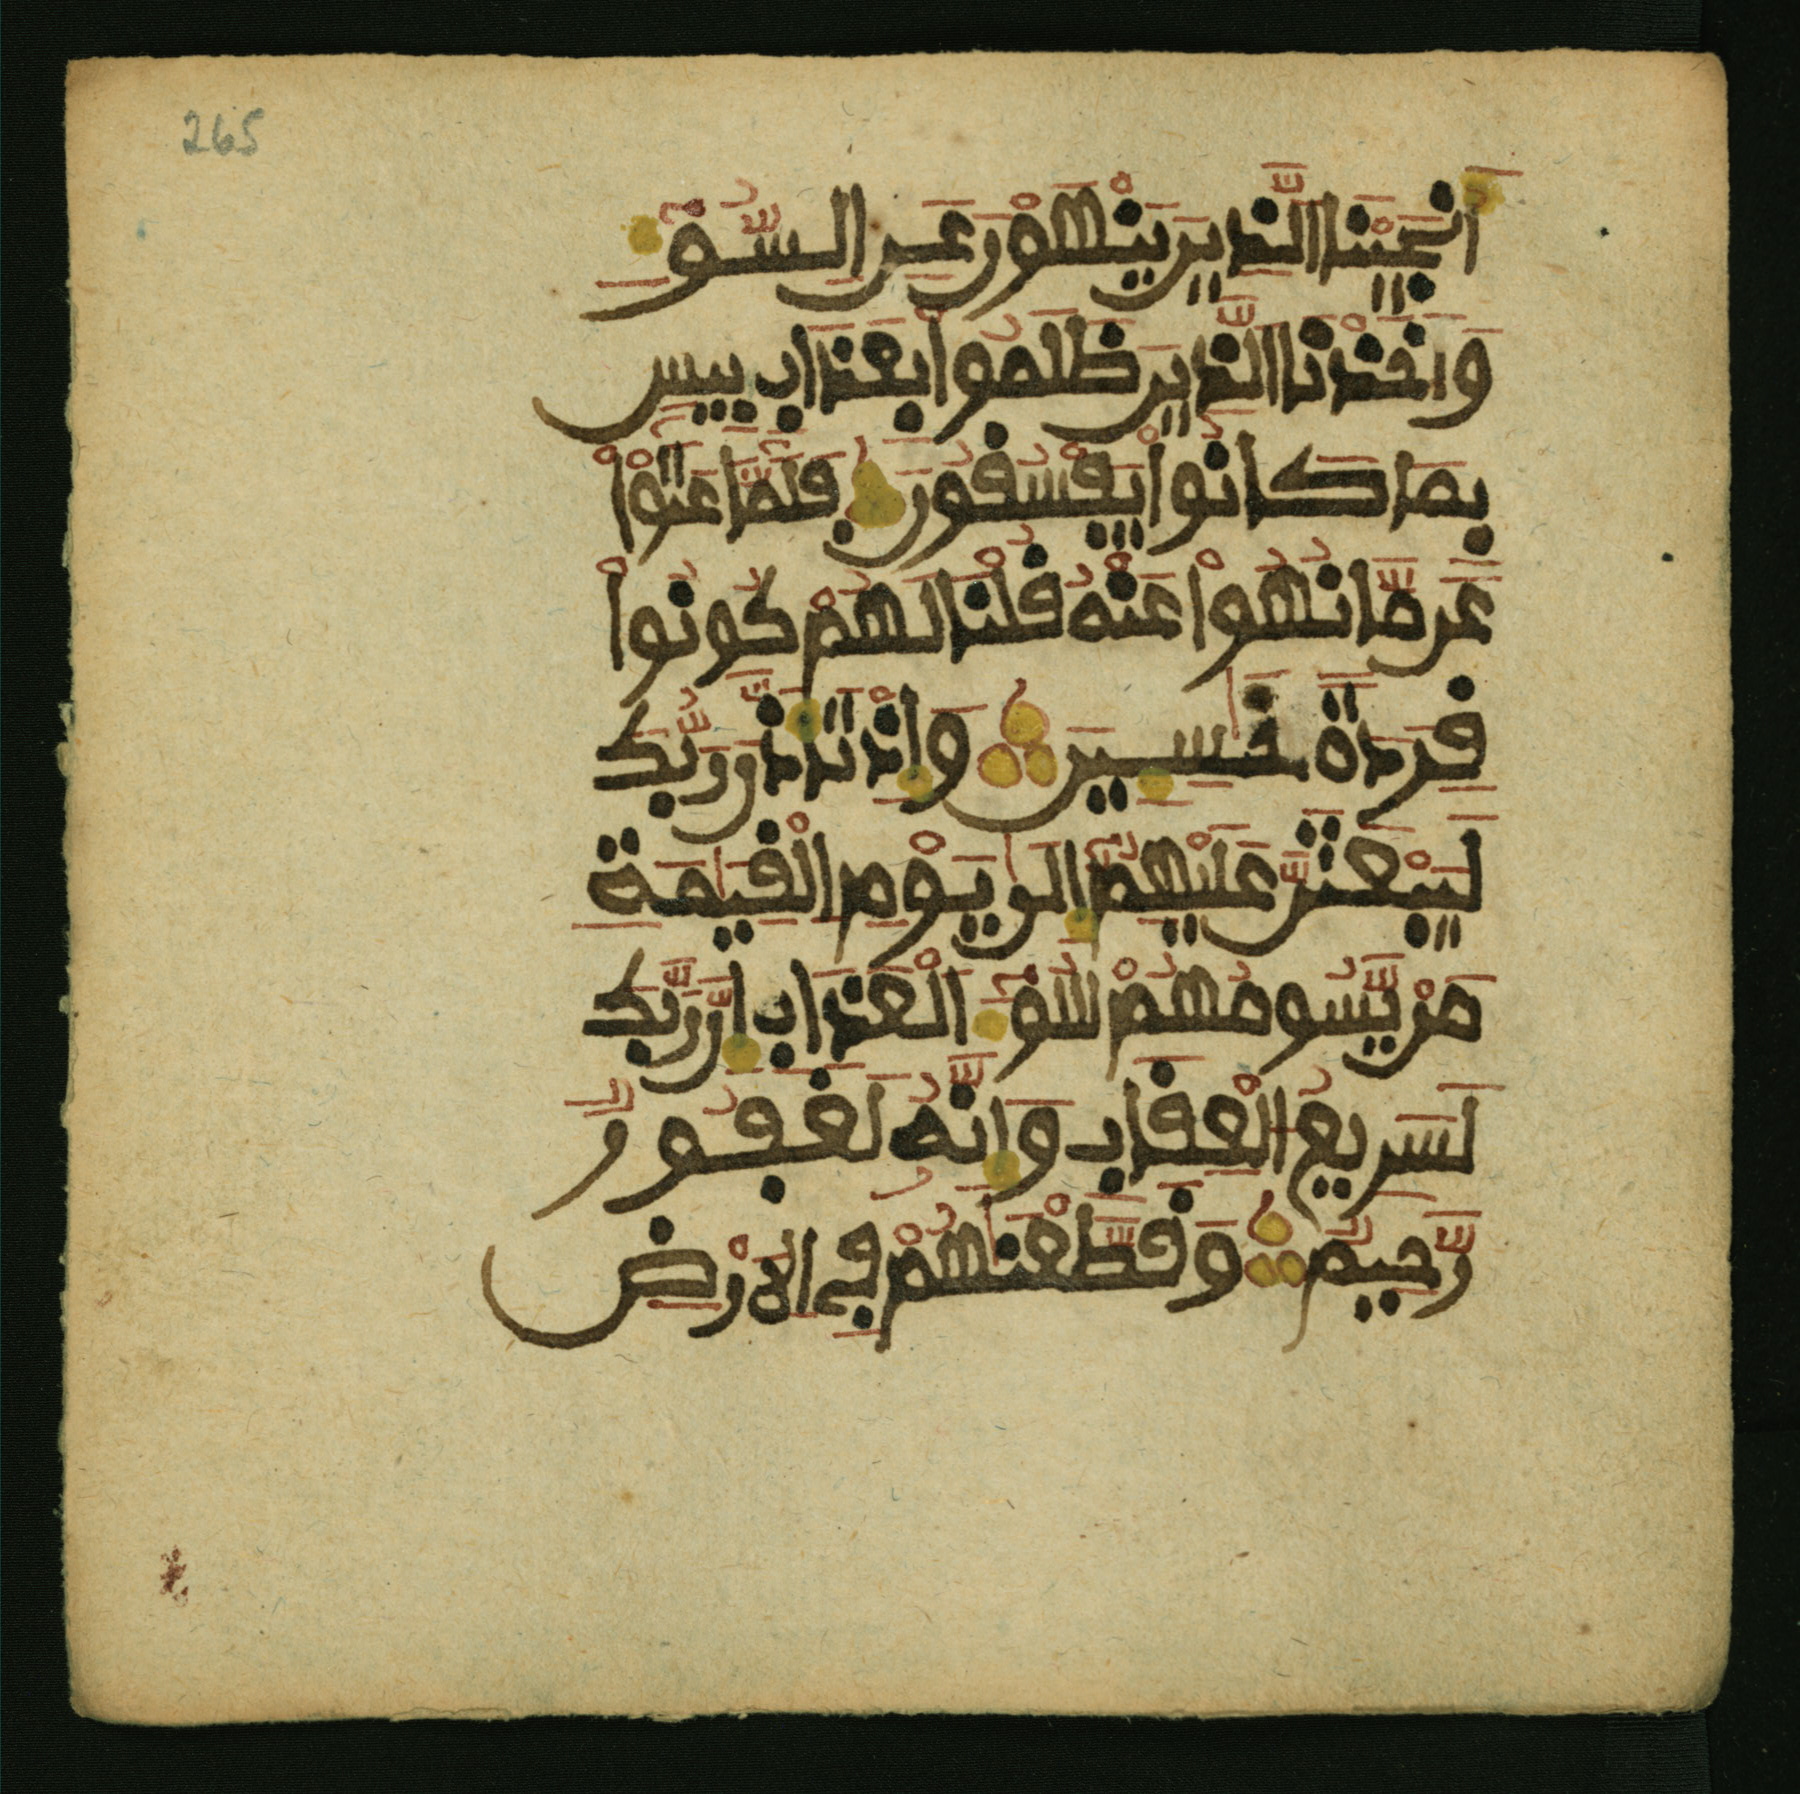 265
أَنجَيْنَا الَّذِينَ يَنْهَوْنَ عَنِ السُّوٓءِ
وَأَخَذْنَا الَّذِينَ ظَلَمُواْ بِعَذَابٍ بِيسٍ
بِمَا كَانُواْ يَفْسُقُونَ فَلَمَّا عَتَوْاْ
عَن مَّا نُهُواْ عَنْهُ قُلْنَا لَهُمْ كُونُواْ
قِرَدَةً خَٰسِـِٔينَ وَإِذْ تَأَذَّنَ رَبُّكَ
لَيَبْعَثَنَّ عَلَيْهِمُۥٓ إِلَىٰ يَوْمِ الْقِيَٰمَةِ
مَنْ يَّسُومُهُمْ سُوٓءَ الْعَذَابِ إِنَّ رَبَّكَ
لَسَرِيعُ الْعِقَابِ وَإِنَّهُۥ لَغَفُورٌ
رَّحِيمٌ وَقَطَّعْنَٰهُمْ فِي الْأَرْضِ